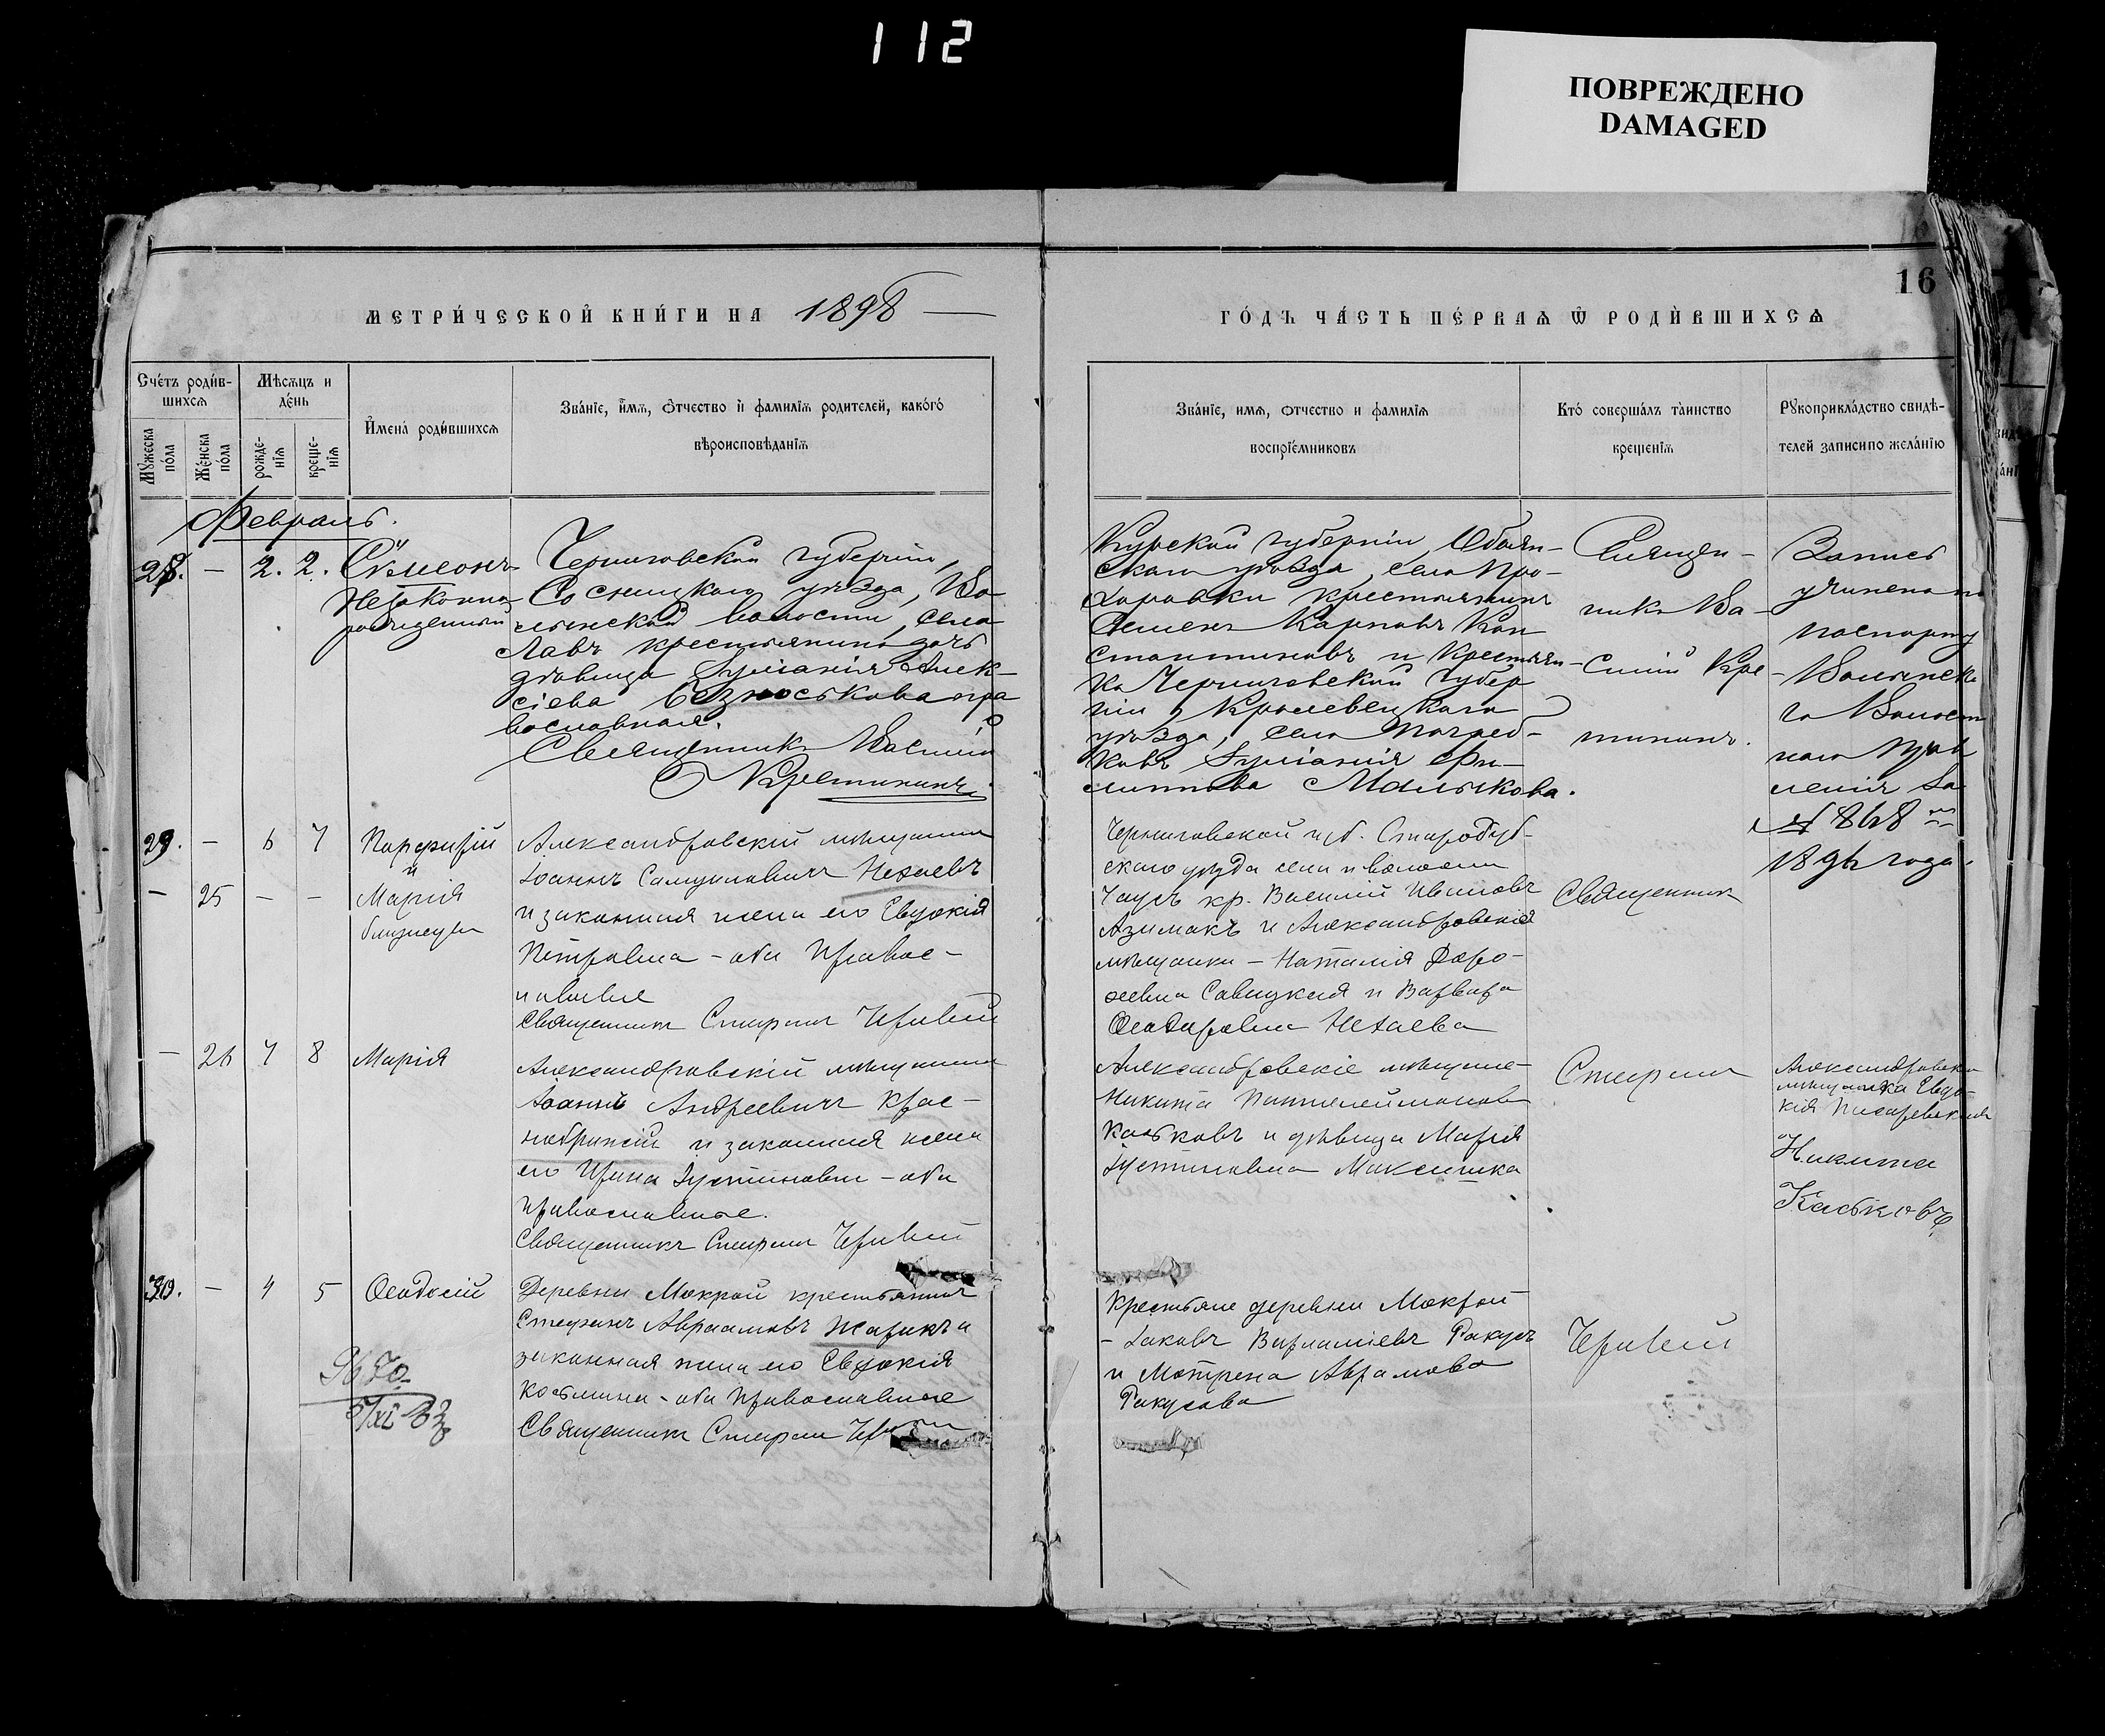 112
ПОВРЕЖДЕНО
DAMAGED
16
МЕТРИ́ЧЕСКОЙ КНИ́ГИ НА 1898
ГО́ДЪ ЧА́СТЬ ПЕ́РВАѦ Ѿ РОДИ́ВШИХСѦ
Сче́тъ роди́в-
шихсѧ
Мꙋ́жеска
по́ла
Же́нска
по́ла
Мѣ́сѧцъ и
де́нь
рожде-
нїѧ
креще-
нїѧ
И́мена̀ роди́вшихсѧ
Зва́нїе, и́мѧ, ѻ́тчество и҆ фамилїѧ родителей, како́гѡ
вѣроисповѣ́данїѧ
Зва́нїе, имѧ, ѻтчество и фами́лїѧ
воспрїе́мниковъ
Кто́ соверша́лъ та́инство
креще́нїѧ
Рꙋкоприкла́дство свидѣ́-
телей записи по жела́нїю
Февраль.
28. — 2. 2. Сѵмеонъ
Незаконно
рожденный
Черниговской губерніи,
Сосницкаго уѣзда, Во-
лынской волости, села
Лавъ крестьянина дочь
дѣвица Іуліанія Алек-
сіева Безноськова пра
вославная.
Священникъ Василій
Крестининъ
Курской губерніи, Обоян-
скаго уѣзда, села Про-
хоровки крестьянинъ
Семенъ Карповъ Кон
стантиновъ и крестьян-
ка Черниговской губер
ніи, Кролевецкаго
уѣзда, села Погреб-
ковъ Іуліанія Фи-
липпова Малькова.
Священ-
никъ Ва-
силій Кре-
стининъ.
Запись
учинена по
паспорту
Волынска
го Волост
наго Прав
ленія за
№ 868
1896 года.
29. — 6 7 Порфирій
и
— 25 — — Марія
близнецы
Александровскій мѣщанинъ
Іоаннъ Самуиловичъ Нехаевъ
и законная жена его Евдокія
Петровна - оба Правос-
лавные
Священникъ Стефанъ
Черниговской губ. Стародуб-
скаго уѣзда села и волости
Чаусъ кр. Василій Ивановъ
Азимокъ и Александровскія
мѣщанки - Наталія Доро-
феевна Савицкая и Варвара
Ѳеодоровна Нехаева
Священникъ
— 26 7 8 Марія
Александровскій мѣщанинъ
Іоаннъ Андреевичъ Крас-
нобрижій и законная жена
его Ирина Іустиновна - оба
православные.
Священникъ Стефанъ
Александровскіе мѣщане -
Никита Пантелеймоновъ
Каськовъ и дѣвица Марія
Іустиновна Максишка
Стефанъ
Александровска
мѣщанка Евдо-
кія Писаревская
Никита
Каськовъ
30. — 4 5 Ѳеодосій
Деревни Мокрой крестьянинъ
Стефанъ Авраамовъ Жарикъ и
законная жена его Евдокія
Косьмина - оба православные
Священникъ Стефанъ
Крестьяне деревни Мокрой
- Іаковъ Варламіевъ Ракусъ
и Мотрена Аврамова
Ракусова